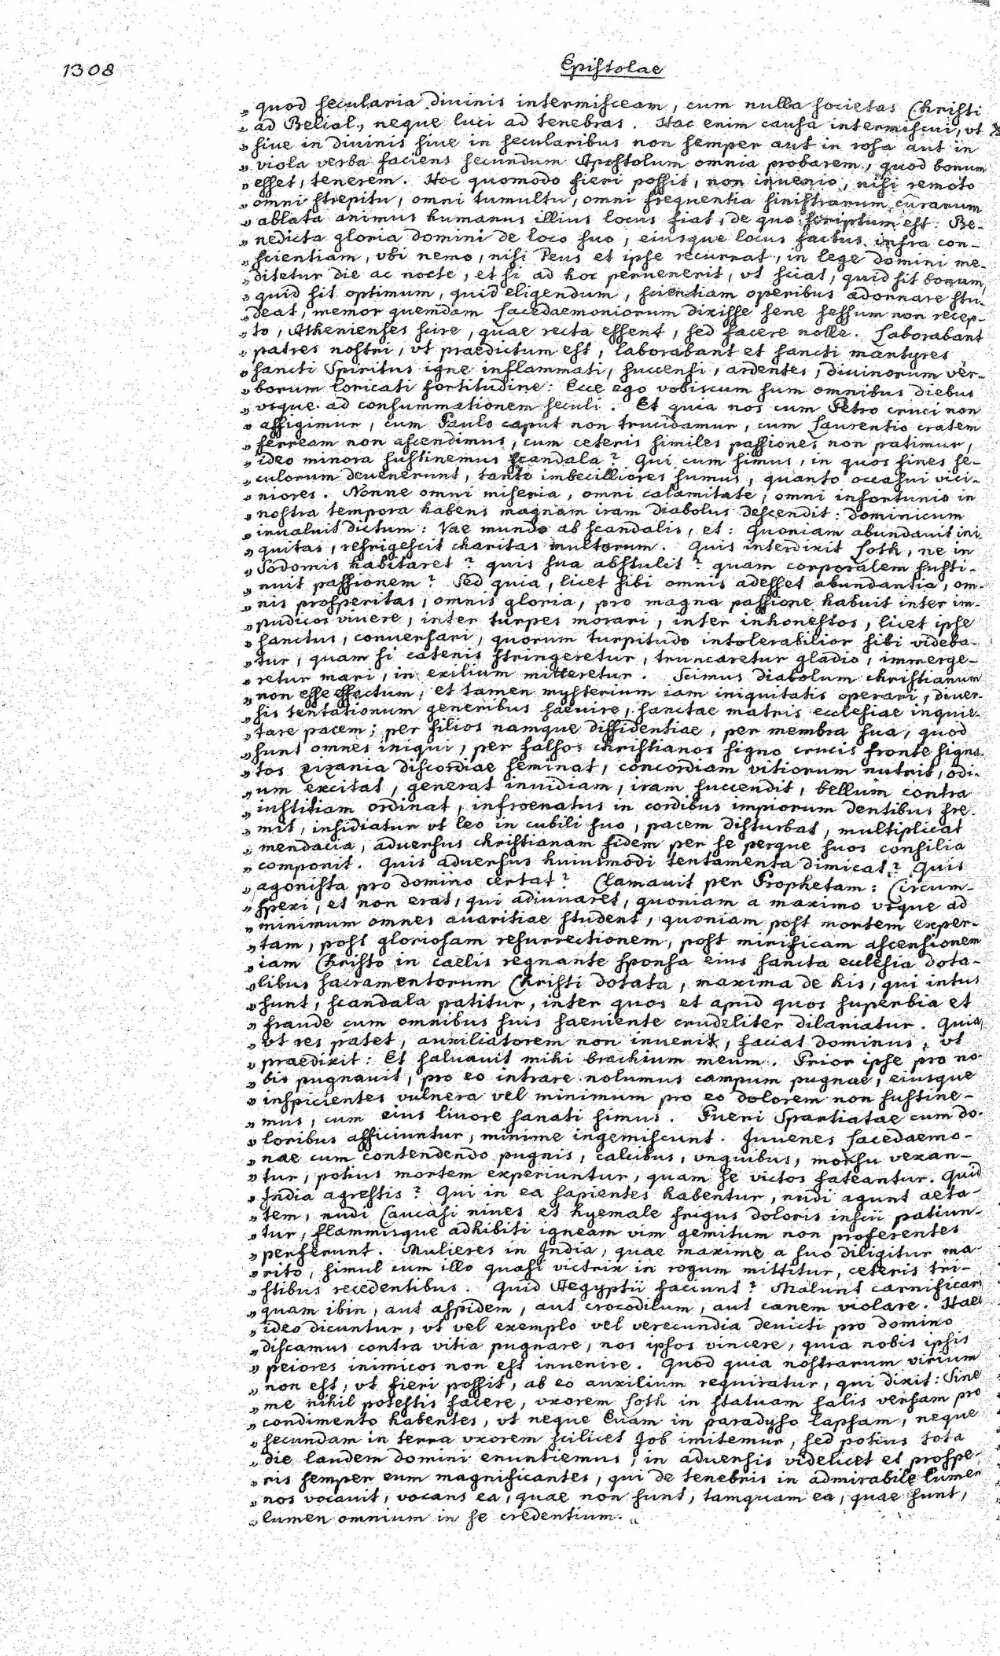 1308
Epistolae
„ quod secularia diuinis intermisceam, cum nulla societas Christi
„ ad Belial, neque luci ad tenebras. Hac enim causa intermiscui, vt
„ siue in diuinis siue in secularibus non semper aut in rosa aut in
„ viola verba faciens secundum Apostolum omnia probarem, quod bonum
„ esset, tenerem. Hoc quomodo fieri possit, non inuenio, nisi remoto
„ omni strepitu, omni tumultu, omni frequentia sinistrarum curarum
„ ablata animus humanus illius locus fiat, de quo scriptum est: Be-
„ nedicta gloria domini de loco suo, eiusque locus factus infra con-
„ scientiam, vbi nemo, nisi Deus et ipse recurrat, in lege domini me-
„ ditetur die ac nocte, et si ad hoc peruenerit, vt sciat, quid sit bonum,
„ quid sit optimum, quid eligendum, scientiam operibus adornare stu-
„ deat, memor quemdam Lacedaemoniorum dixisse sene sessum non recep-
„ to, Athenienses scire, quae recta essent, sed facere nolle. Laborabant
„ patres nostri, vt praedictum est, laborabant et sancti martyres
„ sancti Spiritus igne inflammati, succensi, ardentes, diuinorum ver-
„ borum loricati fortitudine: Ecce ego vobiscum sum omnibus diebus
„ vsque ad consummationem seculi. Et quia nos cum Petro cruci non
„ affigimur, cum Paulo caput non trucidamur, cum Laurentio cratem
„ ferream non ascendimus, cum ceteris similes passiones non patimur,
„ ideo minora sustinemus scandala? Qui cum simus, in quos fines se-
„ culorum deuenerunt, tanto imbecilliores sumus, quanto occasui vici-
„ niores. Nonne omni miseria, omni calamitate, omni infortunio in
„ nostra tempora habens magnam iram diabolus descendit: dominicum
„ inualuit dictum: Vae mundo ab scandalis, et: Quoniam abundauit ini
„ quitas, refrigescit charitas multorum. Quis interdixit Loth, ne in
„ Sodomis habitaret? quis sua abstulit? quam corporalem susti-
„ nuit passionem? Sed quia, licet sibi omnis adesset abundantia, om-
„ nis prosperitas, omnis gloria, pro magna passione habuit inter im-
„ pudicos viuere, inter turpes morari, inter inhonestos, licet ipse
„ sanctus, conuersari, quorum turpitudo intolerabilior sibi videba-
„ tur, quam si catenis stringeretur, truncaretur gladio, immerge-
„ retur mari, in exilium mitteretur. Scimus diabolum christianum
„ non esse effectum, et tamen mysterium iam iniquitatis operari, diuer-
„ sis tentationum generibus saeuire, sanctae matris ecclesiae inquie-
„ tare pacem; per filios namque diffidentiae, per membra sua, quod
„ sunt omnes iniqui, per falsos christianos signo crucis fronte signa-
„ tos zizania discordiae seminat, concordiam vitiorum nutrit, odi-
„ um excitat, generat inuidiam, iram succendit, bellum contra
„ iustitiam ordinat, infroenatus in cordibus impiorum dentibus fre-
„ mit, insidiatur vt leo in cubili suo, pacem disturbat, multiplicat
„ mendacia, aduersus christianam fidem per se perque suos consilia
„ componit. Quis aduersus huiusmodi tentamenta dimicat? Quis
„ agonista pro domino certat? Clamauit per Prophetam: Circum-
„ spexi, et non erat, qui adiuuaret, quoniam a maximo vsque ad
„ minimum omnes auaritiae student, quoniam post mortem exper-
„ tam, post gloriosam resurrectionem, post mirificam ascensionem
„ iam Christo in caelis regnante sponsa eius sancta ecclesia dota-
„ libus sacramentorum Christi dotata, maxima de his, qui intus
„ sunt, scandala patitur, inter quos et apud quos superbia et
„ fraude cum omnibus suis saeuiente crudeliter dilaniatur. Quia,
„ vt res patet, auxiliatorem non inuenit, faciat dominus, vt
„ praedixit: Et saluauit mihi brachium meum. Prior ipse pro no
„ bis pugnauit, pro eo intrare nolumus campum pugnae, eiusque
„ inspicientes vulnera vel minimum pro eo dolorem non sustine-
„ mus, cum eius liuore sanati simus. Pueri Spartiatae cum do-
„ loribus afficiuntur, minime ingemiscunt. Iuuenes Lacedaemo-
„ nae cum contendendo pugnis, calcibus, vnguibus, morsu vexan-
„ tur, potius mortem experiuntur, quam se victos fateantur. Quid
„ India agrestis? Qui in ea sapientes habentur, nudi agunt aeta-
„ tem, nudi Caucasi niues et hyemale frigus doloris inscii patiun-
„ tur, flammisque adhibiti igneam vim gemitum non proferentes
„ perferunt. Mulieres in India, quae maxime a suo diligitur ma-
„ rito, simul cum illo quasi victrix in rogum mittitur, ceteris tri-
„ stibus recedentibus. Quid Aegyptii faciunt? Malunt carnificari
„ quam ibin, aut aspidem, aut crocodilum, aut canem violare. Haec
„ ideo dicuntur, vt vel exemplo vel verecundia deuicti pro domino
„ discamus contra vitia pugnare, nos ipsos vincere, quia nobis ipsis
„ peiores inimicos non est inuenire. Quod quia nostrarum virium
„ non est, vt fieri possit, ab eo auxilium requiratur, qui dixit: Sine
„ me nihil potestis facere, vxorem Loth in statuam salis versam pro
„ condimento habentes, vt neque Euam in paradyso lapsam, neque
„ secundam in terra vxorem scilicet Job imitemur, sed potius tota
„ die laudem domini enuntiemus, in aduersis videlicet et prospe-
„ ris semper eum magnificantes, qui de tenebris in admirabile lumen
„ nos vocauit, vocans ea, quae non sunt, tamquam ea, quae sunt,
„ lumen omnium in se credentium. „